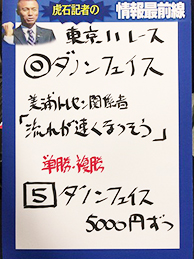 虎石記者の
情報最前線
東京11レース
◎ダノンフェイス
美浦トレセン関係者
「流れが速くなりそう」
単勝・複勝
5 ダノンフェイス
5000円ずつ